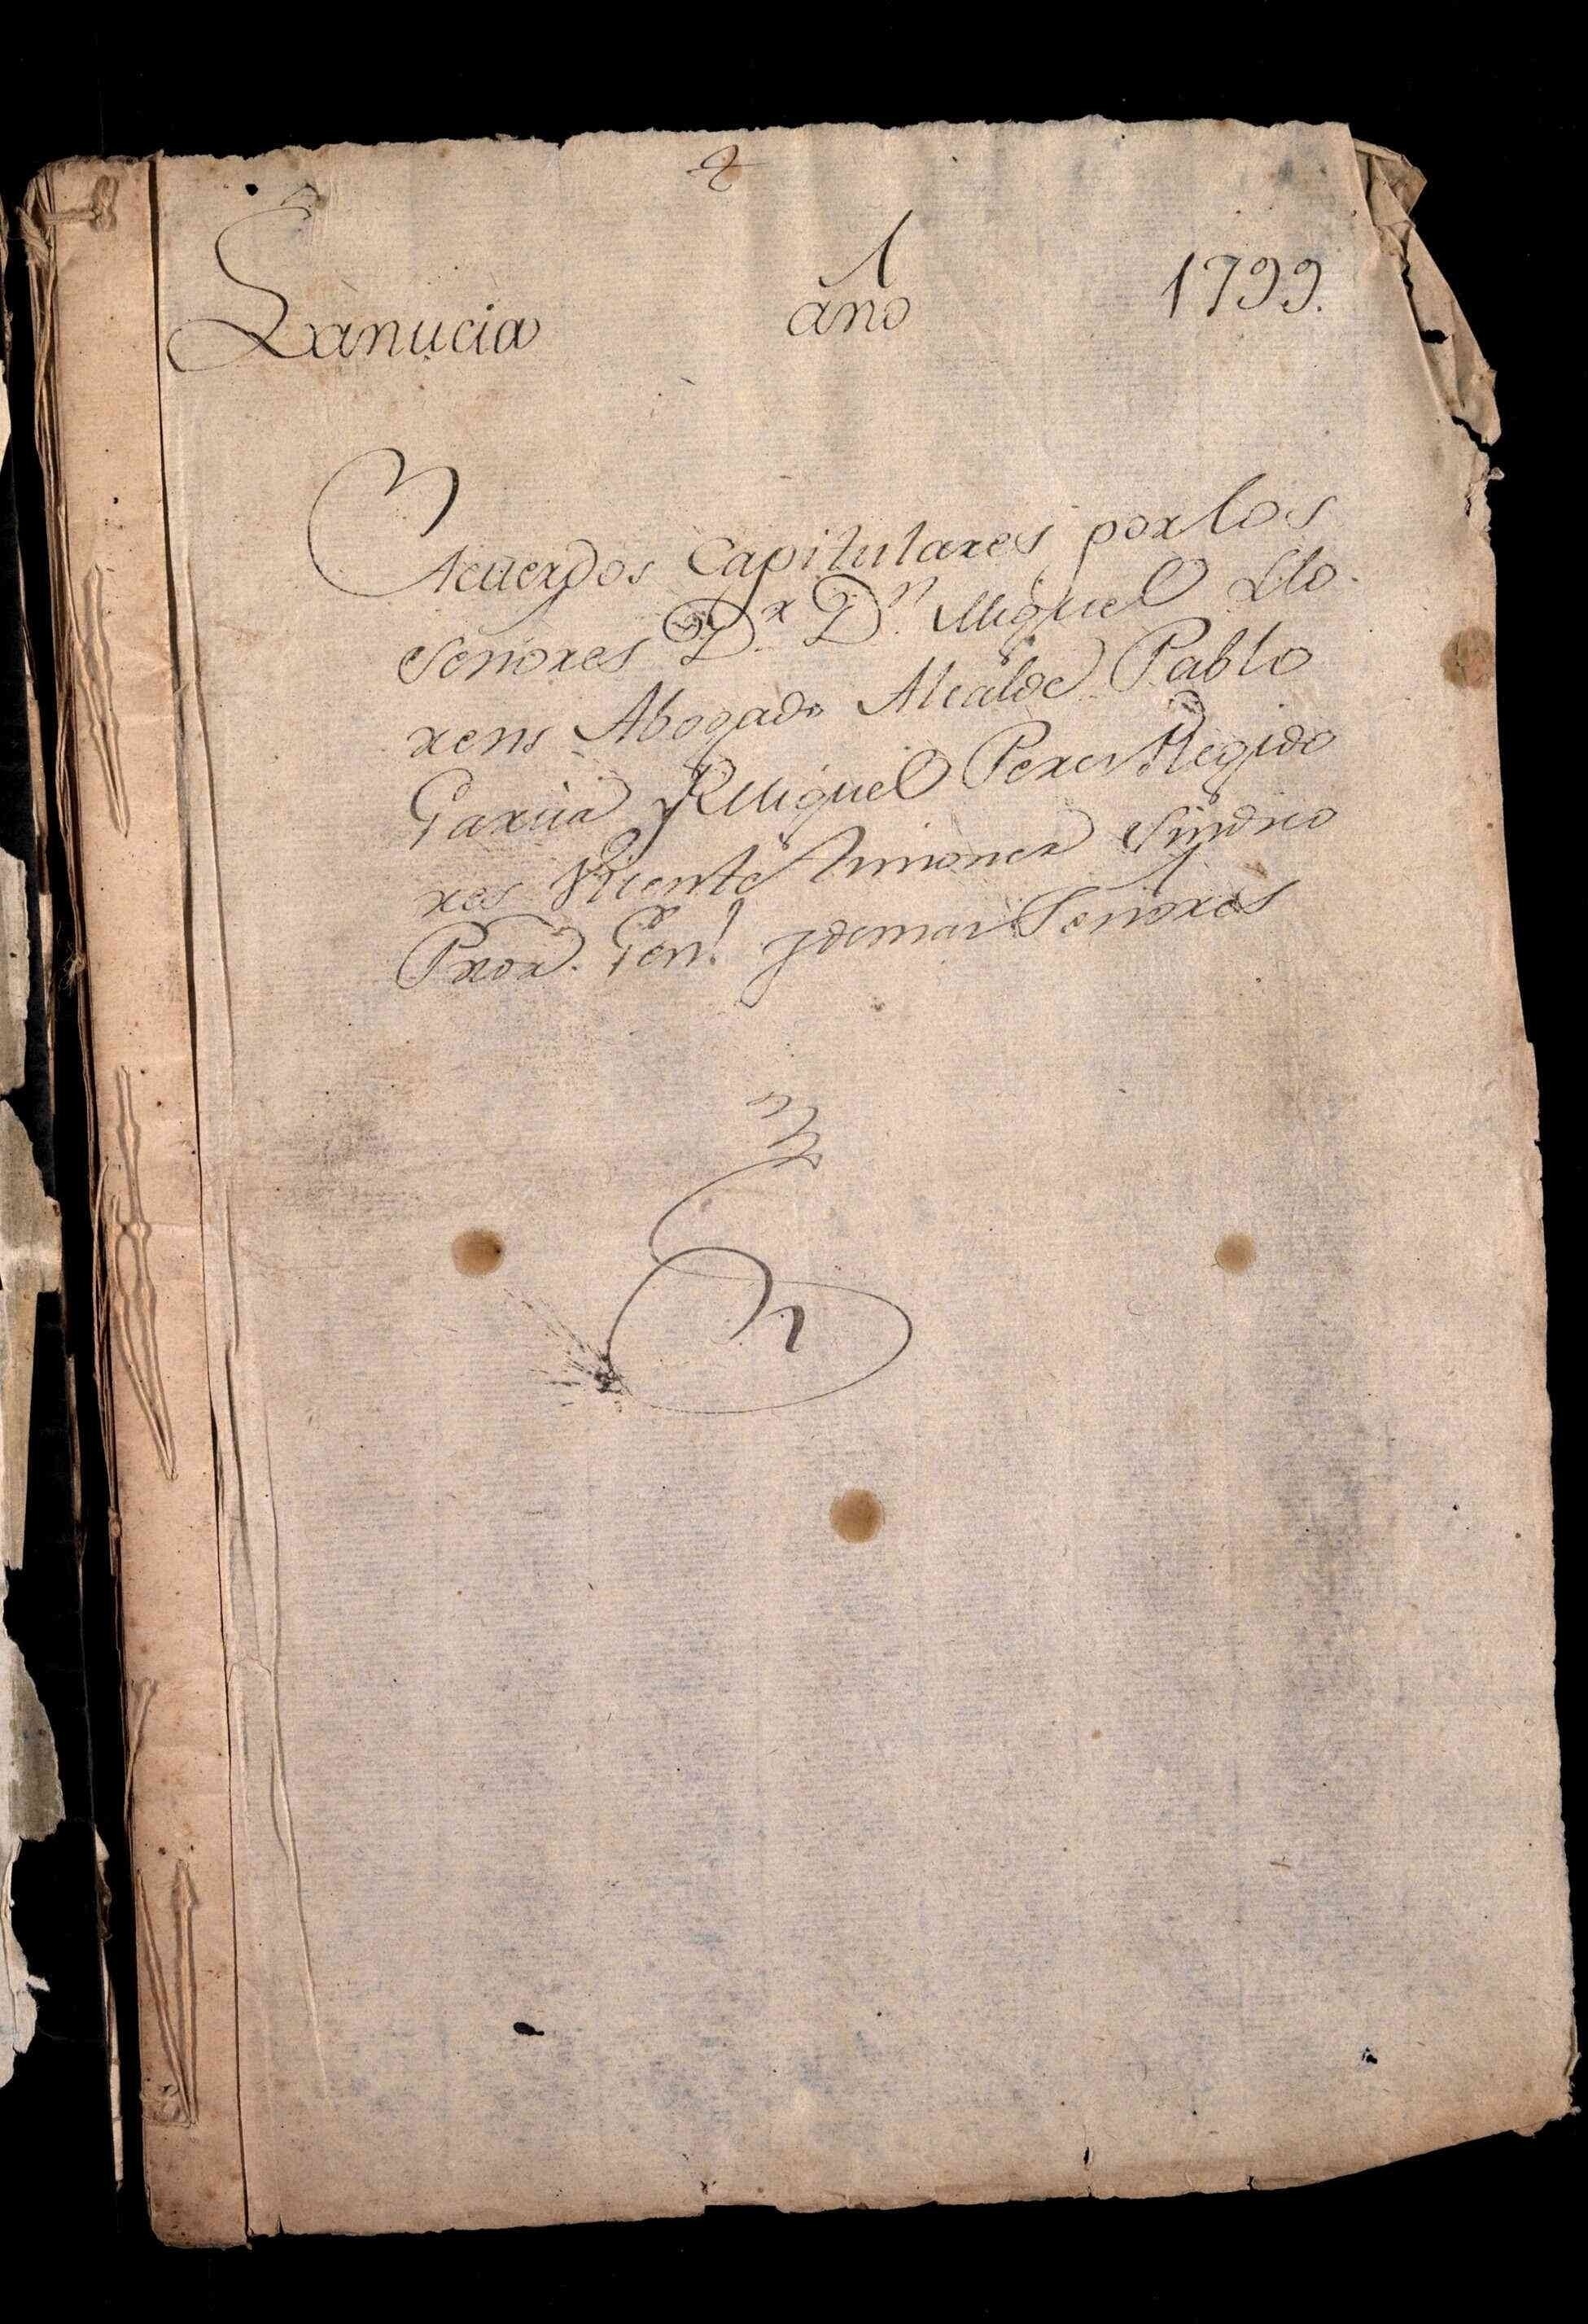 Lanucia año 1799.
Acuerdos Capitulares por los
Señores D.r D.n Miguel Llo-
rens Abogado Alcalde Pablo
Garcia y Miguel Peres Regido
res Vicente Ximenez Sindico
Pror. Gen.l y demas Señores